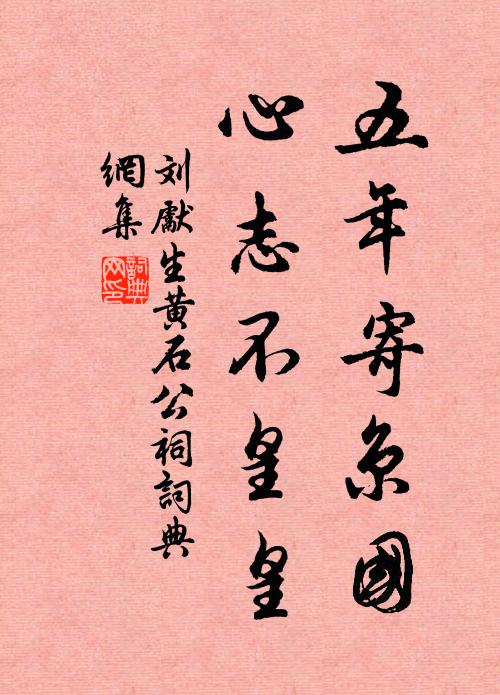 五年寄京國
心志不皇皇
刘獻生黄石公祠詞典
網集
詞典網印